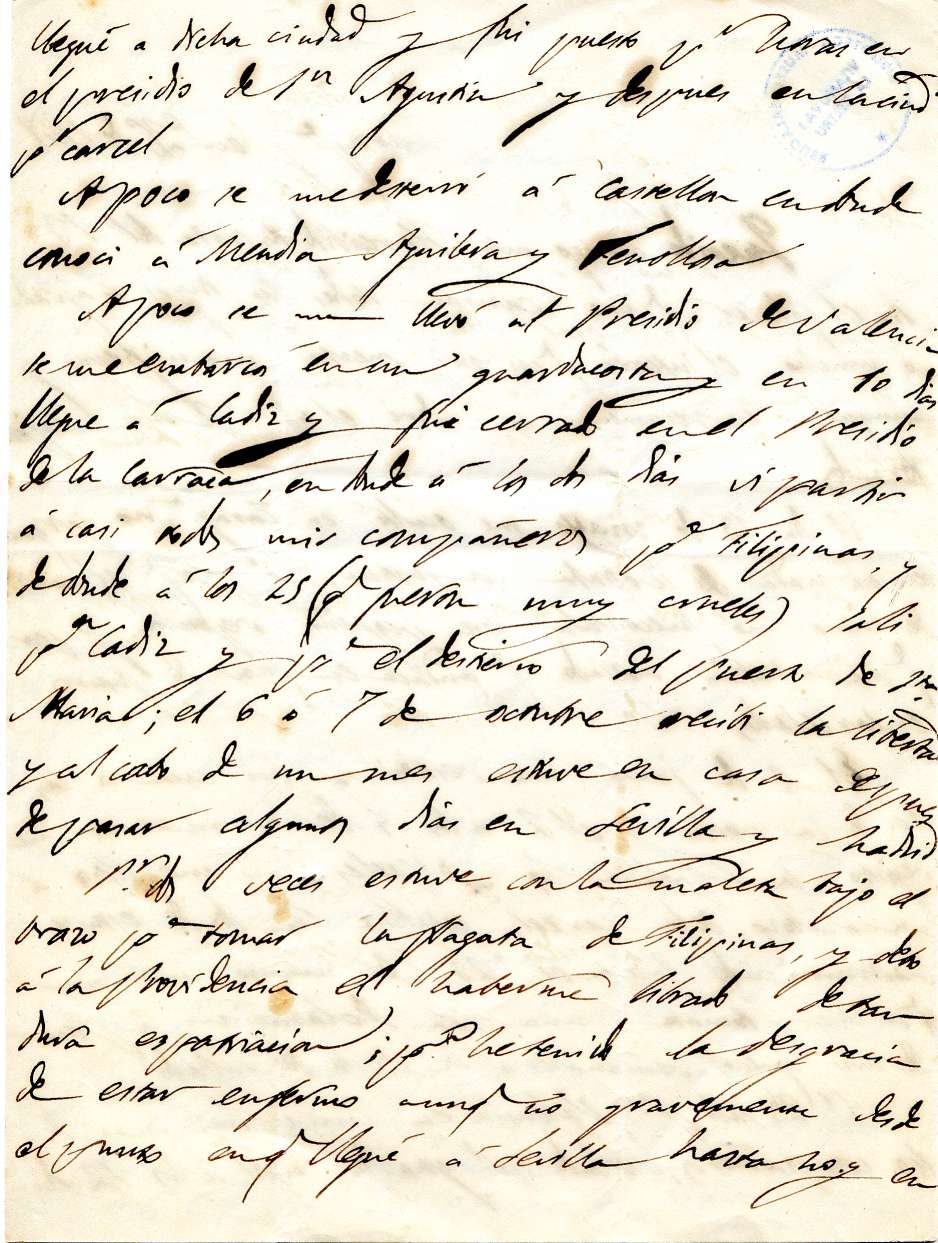 llegué a dicha ciudad y fui puesto pr horas en
el presidio de Sn Agustin y despues en la ciud
pr carcel
A poco se me desterró á Castellon en donde
conoci á Mendia Aguilera y Fenollosa
A poco se me llevó al Presidio de Valencia
se me embarcó en un guardacosta y en 10 dias
llegue á Cadiz y fui cerrado en el Presidio
de la Carraca, en donde á los dos dias vi partir
á casi todos mis compañeros pa Filipinas, y
de donde á los 25 (q fueron muy crueles) sali
pa Cadiz y pa el destierro del puerto de Sta
Maria; el 6 ó 7 de octubre recibi la libertad
y al cabo de un mes estuve en casa despues
de pasar algunos dias en Sevilla y Madrid
Pr dos veces estuve con la maleta bajo el
brazo pa tomar la fragata de Filipinas, y debo
á la providencia el haberme librado de tan
dura espatriacion; po he tenido la desgracia
de estar enfermo aunq no gravemente desde
el punto en q llegué á Sevilla hasta hoy en